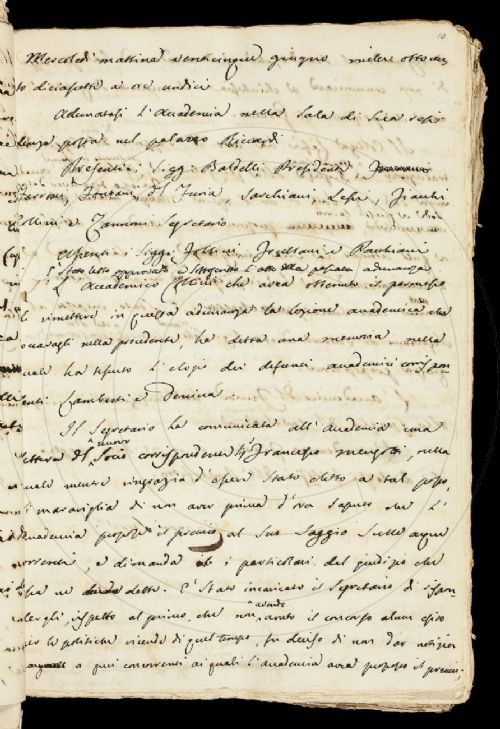 10
Mercoledì mattina venticinque giugno mille ottocen
to diciasette a ore undici
Adunatasi l'Accademia nella Sala di sua resi
denza posta nel palazzo Riccardi
Presenti i Sigg. Baldelli Presidente
Ferroni, Fontani, del Furia, Sarchiani, Lessi,
Collini e Zannoni Segretario
Assenti i Sigg. e
È stato letto approvato e sottoscritto l'atto della passata adunanza
L'Accademico Collini che avea ottenuto il permesso
di rimettere in questa adunanza la lezione accademica che
nella precedente, ha detta una memoria nella
quale ha tessuto l'elogio dei defunti accademici corrispon
denti Lamberti e Denina.
Il Segretario ha comunicata all'Accademia una
lettera del nuovo Socio corrispondente Sig. Francesco Mengotti, nella
quale mentre ringrazia d'essere stato eletto a tal posto,
si maraviglia di non aver prima d'ora saputo che l'
Accademia propose il premio al suo Saggio sulle acque
correnti, e dimanda i particolari del giudizio che
ne detto. È stato incaricato il Segretario di rispon
dergli, rispetto al primo, che non avendo avuto il concorso alcun esito
per le politiche vicende di quel tempo, fu deciso di non dar notizia
a quei concorrenti ai quali l'Accademia avea proposto il premio;